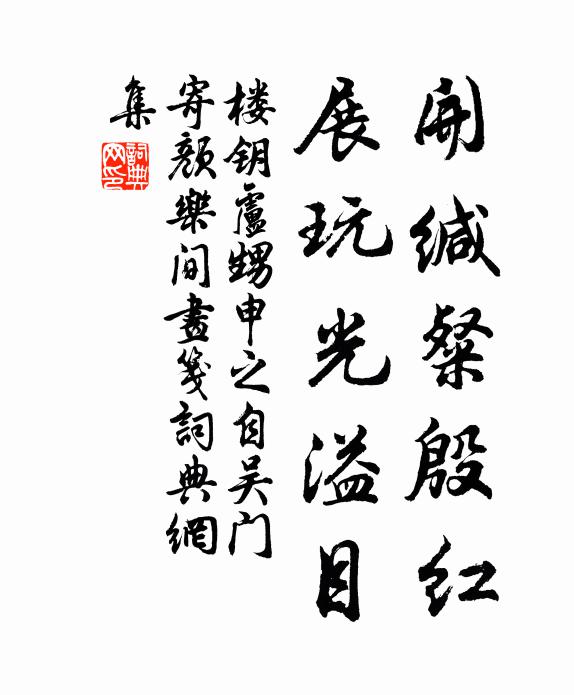 開缄粲殷红
展玩光溢目
楼钥盧甥申之自吴门
寄颜樂间畫箋詞典網
集
詞典网印